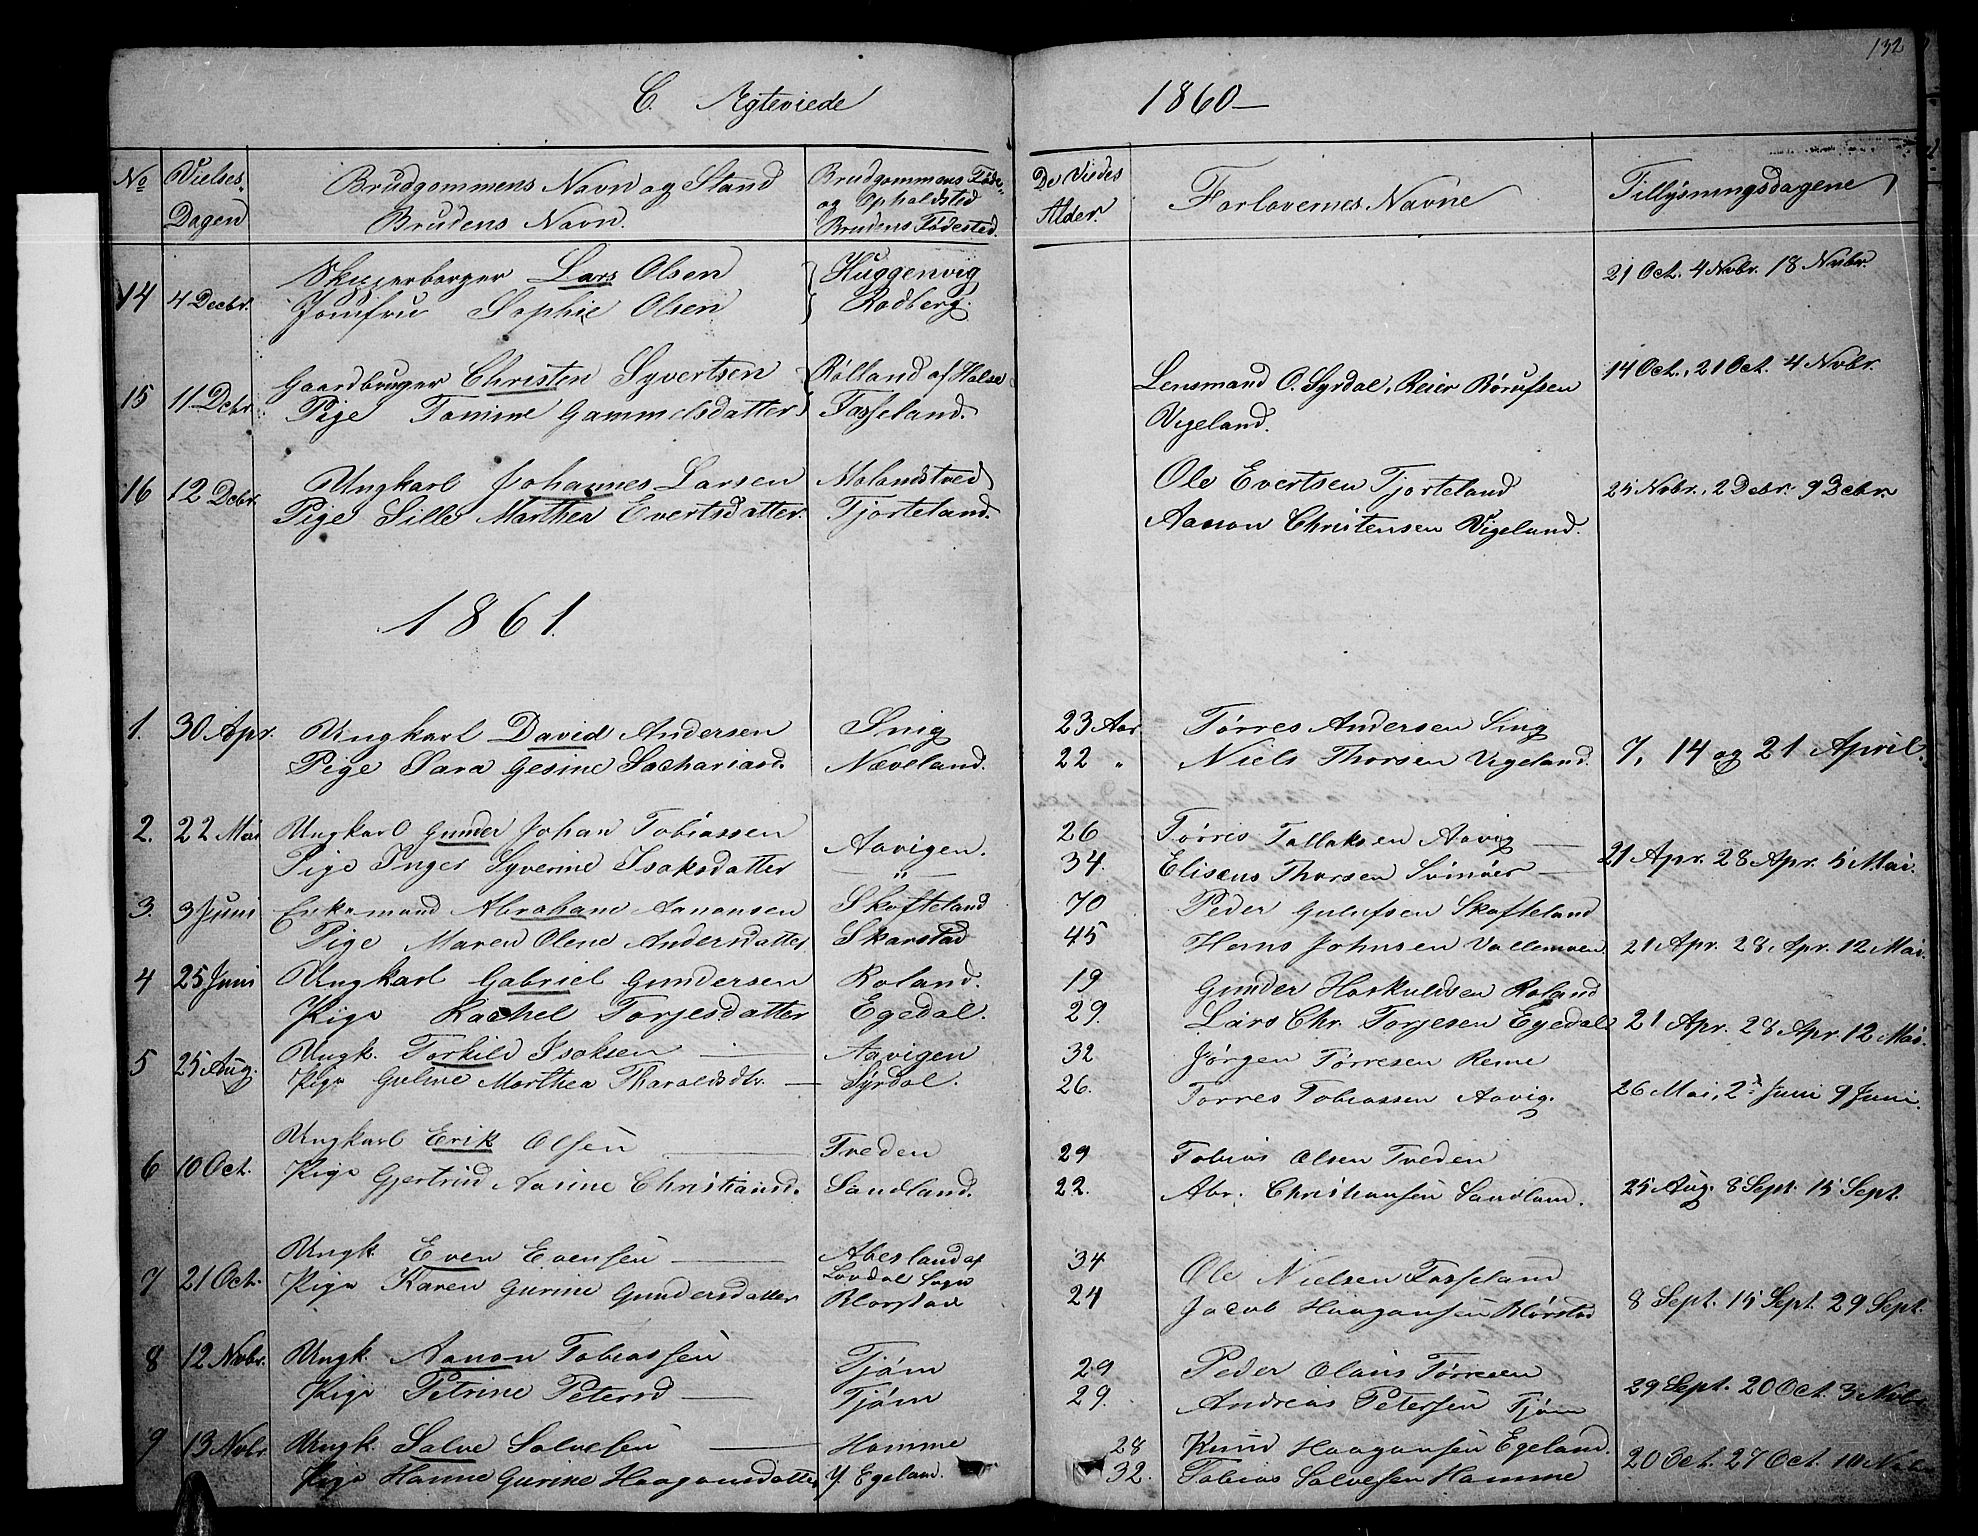 132
C. Ægteviede 1860—
No Vielses- Dagen Brudgommens Navn og Stand Brudens Navn. Brudgommens Føde- og Opholdsted Brudens Fødested. De Viedes Alder. Forlovernes Navne Tillysningsdagene
14 4 Decbr. Skipperborger Lars Olsen Huggenvig 21 Oct. 4 Novbr. 18 Novbr.
Jomfru Sophie Olsen Rødberg.
15 11 Debr. Gaardbruger Christen Syvertsen Rølland af Halse Lensmand O. Syrdal, Reier Rørufsen 14 Oct., 21 Oct. 4 Novbr.
Pige Tomine Gammelsdatter Fasseland. Vigeland.
16 12 Debr. Ungkarl Johannes Larsen Molandstved Ole Evertsen Tjorteland 25 Novbr., 2 Debr. 9 Debr.
Pige Sille Marthea Evertsdatter. Tjorteland. Aanon Christensen Vigeland.
1861.
1. 30 Apr. Ungkarl David Andersen Snig 23 Aar Tørres Andersen Snig
Pige Sara Gesine Sachariasd. Næveland. 22 " Niels Thorsen Vigeland. 7, 14 og 21 April.
2. 22 Mai Ungkarl Gunder Johan Tobiassen Aavigen. 26 Tørres Tollaksen Aavig —
Pige Inger Syverine Isaksdatter — " — 34. Eliseus Thorsen Svinøer — 21 Apr. 28 Apr. 5 Mai.
3. 3 Juni Enkemand Abraham Aanonsen Skofteland 70 Peder Gulufsen Skofteland
Pige Maren Olene Andersdatter Skarstad 45 Hans Johnsen Vallemoen 21 Apr. 28 Apr. 12 Mai.
4 25 Juni Ungkarl Gabriel Gundersen Roland. 19 Gunder Hoskuldsen Roland
Pige Rachel Torjesdatter Egedal. 29. Lars Chr. Torjesen Egedal 21 Apr. 28 Apr. 12 Mai.
5 25 Aug. Ungk. Torkild Isaksen — Aavigen 32 Jørgen Tørresen Reme
Pige Guline Marthea Tharaldsdtr. — Syrdal. 26. Tørres Tobiassen Aavig. 26 Mai, 2d Juni 9 Juni.
6 10 Oct. Ungkarl Erik Olsen — Tveden 29 Tobias Olsen Tveden
Pige Gjertrud Aasine Christiansd. Sandland. 22. Abr. Christiansen Sandland. 25 Aug. 8 Sept. 15 Sept.
7 21 Oct. Ungk. Even Evensen — Abesland af Løvdal Sogn 34 Ole Nielsen Fasseland
Pige Karen Gurine Gundersdatter Blørstad 24 Jacob Haagansen Blørstad 8 Sept. 15 Sept. 29 Sept.
8 12 Novbr. Ungk. Aanon Tobiassen Tjøm 29 Peder Olaus Tørresen
Pige Petrine Petersd — Tjøm 29. Andreas Petersen Tjøm 29 Sept. 20 Oct. 3 Novbr
9 13 Novbr. Ungk. Salve Salvesen — Homme 28 Knud Haagansen Egeland.
Pige Hanne Gurine Haagansdatter Y Egeland. 32. Tobias Salvesen Homme 20 Oct. 27 Oct. 10 Novbr